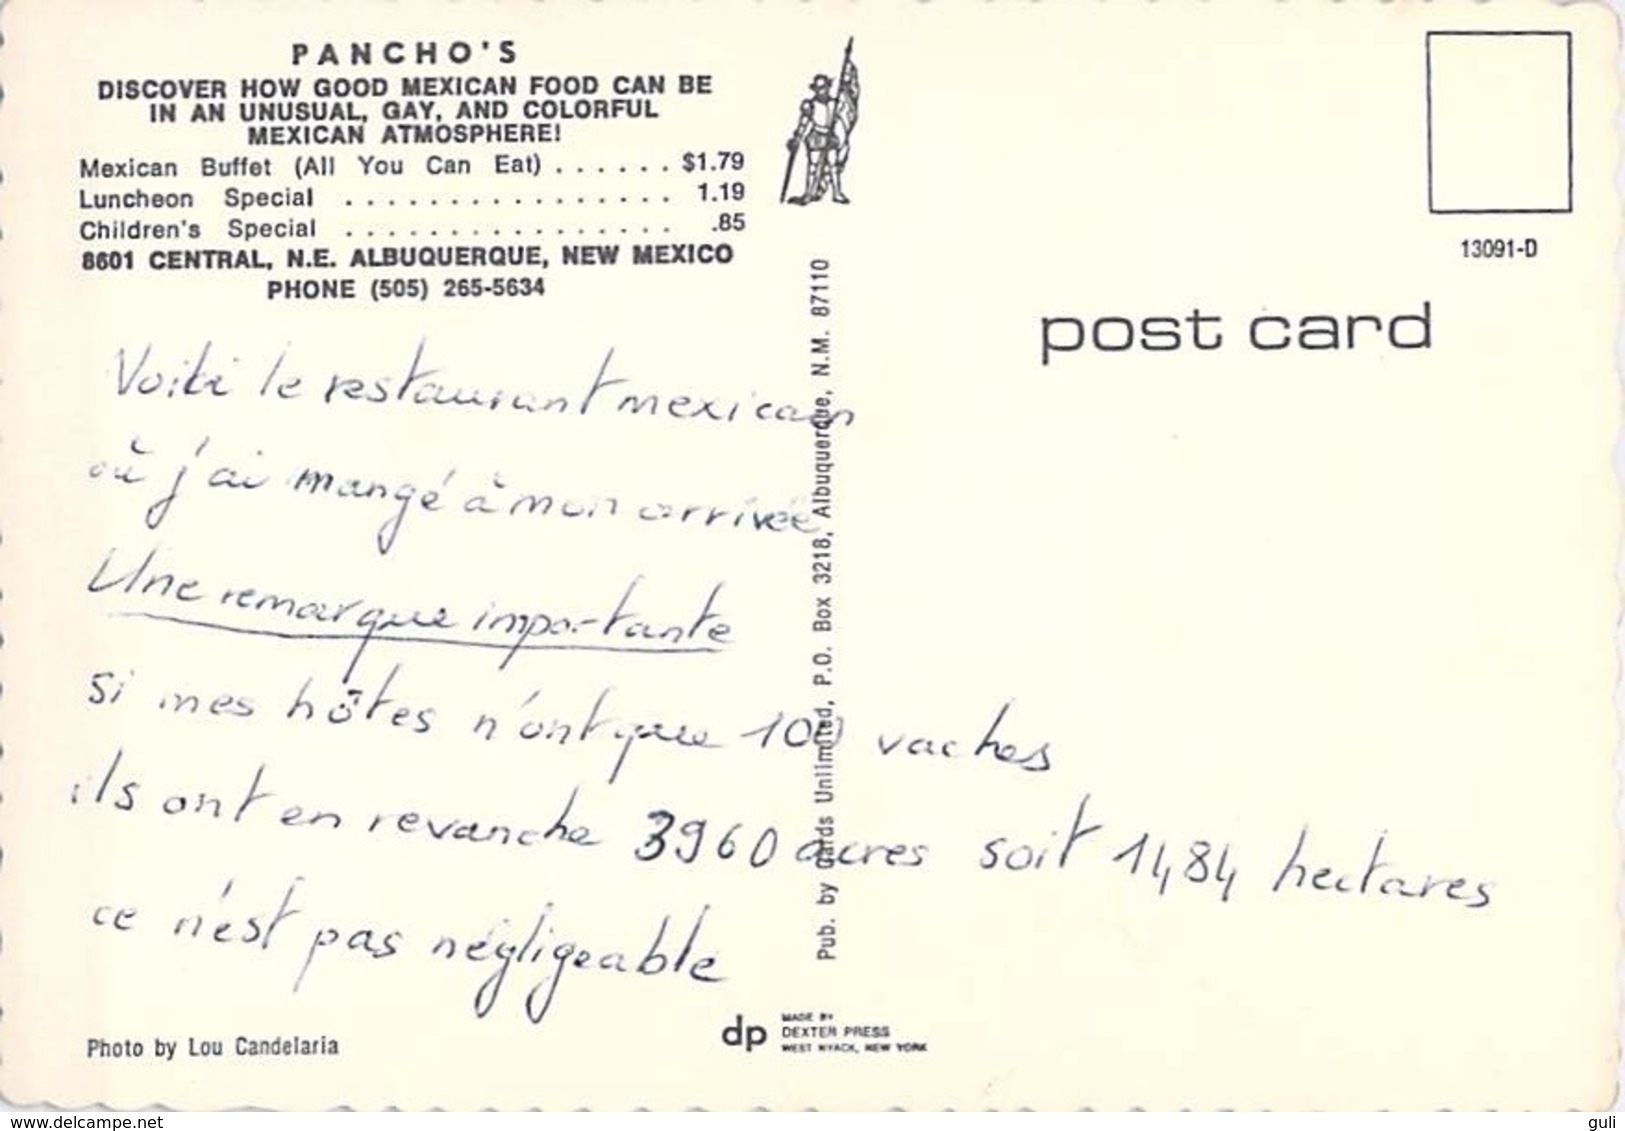 PANCHO'S
DISCOVER HOW GOOD MEXICAN FOOD CAN BE
IN AN UNUSUAL, GAY, AND COLORFUL
MEXICAN ATMOSPHERE!
Mexican Buffet (All You Can Eat) . . . . . . $1.79
Luncheon Special . . . . . . . . . . . . . . . . 1.19
Children's Special . . . . . . . . . . . . . . . . .85
8601 CENTRAL, N.E. ALBUQUERQUE, NEW MEXICO
PHONE (505) 265-5634
Voilà le restaurant mexicain
où j'ai mangé à mon arrivée
Une remarque importante
si mes hôtes n'ont que 100 vaches
ils ont en revanche 3960 acres soit 1484 hectares
ce n'est pas négligeable
Photo by Lou Candelaria
Pub. by Cards Unlimited, P.O. Box 3218, Albuquerque, N.M. 87110
dp
MADE BY
DEXTER PRESS
WEST NYACK, NEW YORK
13091-D
post card
www.delcampe.net
guli